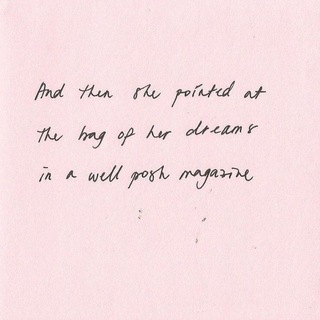 And then she pointed at
the bag of her dreams
in a well posh magazine